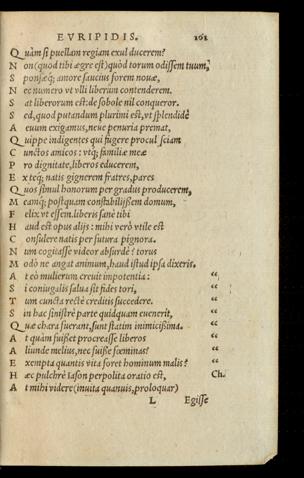 EVRIPIDIS. 101
Quàm si puellam regiam exul ducerem?
Non (quod tibi ægre est) quòd torum odissem tuum,
Sponsæq; amore saucius forem nouæ,
Nec numero vt vlli liberûm contenderem.
Sat liberorum est: de sobole nil conqueror.
Sed, quod putandum plurimi est, vt splendidè
Aeuum exigamus, neue penuria premat,
Quippe indigentes qui fugere procul sciam
Cunctos amicos: vtq; familiæ meæ
Pro dignitate, liberos educerem,
Exteq; natis gignerem fratres, pares
Quos simul honorum per gradus producerem,
Meamq; postquam constabilissem domum,
Felix vt essem. liberis sanè tibi
Haud est opus alijs: mihi verò vtile est
Consulere natis per futura pignora.
Num cogitasse videor absurdè? torus
Modò ne angat animum, haud istud ipsa dixeris.
At eò mulierum creuit impotentia: “
Si coniugalis salua sit fides tori, “
Tum cuncta rectè creditis succedere. “
Sin hac sinistrè parte quidquam euenerit, “
Qua chara fuerant, sunt statim inimicissima. “
At quàm fuisset procreasse liberos “
Aliunde melius, nec fuisse fœminas? “
Exempta quantis vita foret hominum malis? “
Hæc pulchrè Iason perpolita oratio est, Ch.
At mihi videre (inuita quanuis, proloquar)
L Egisse